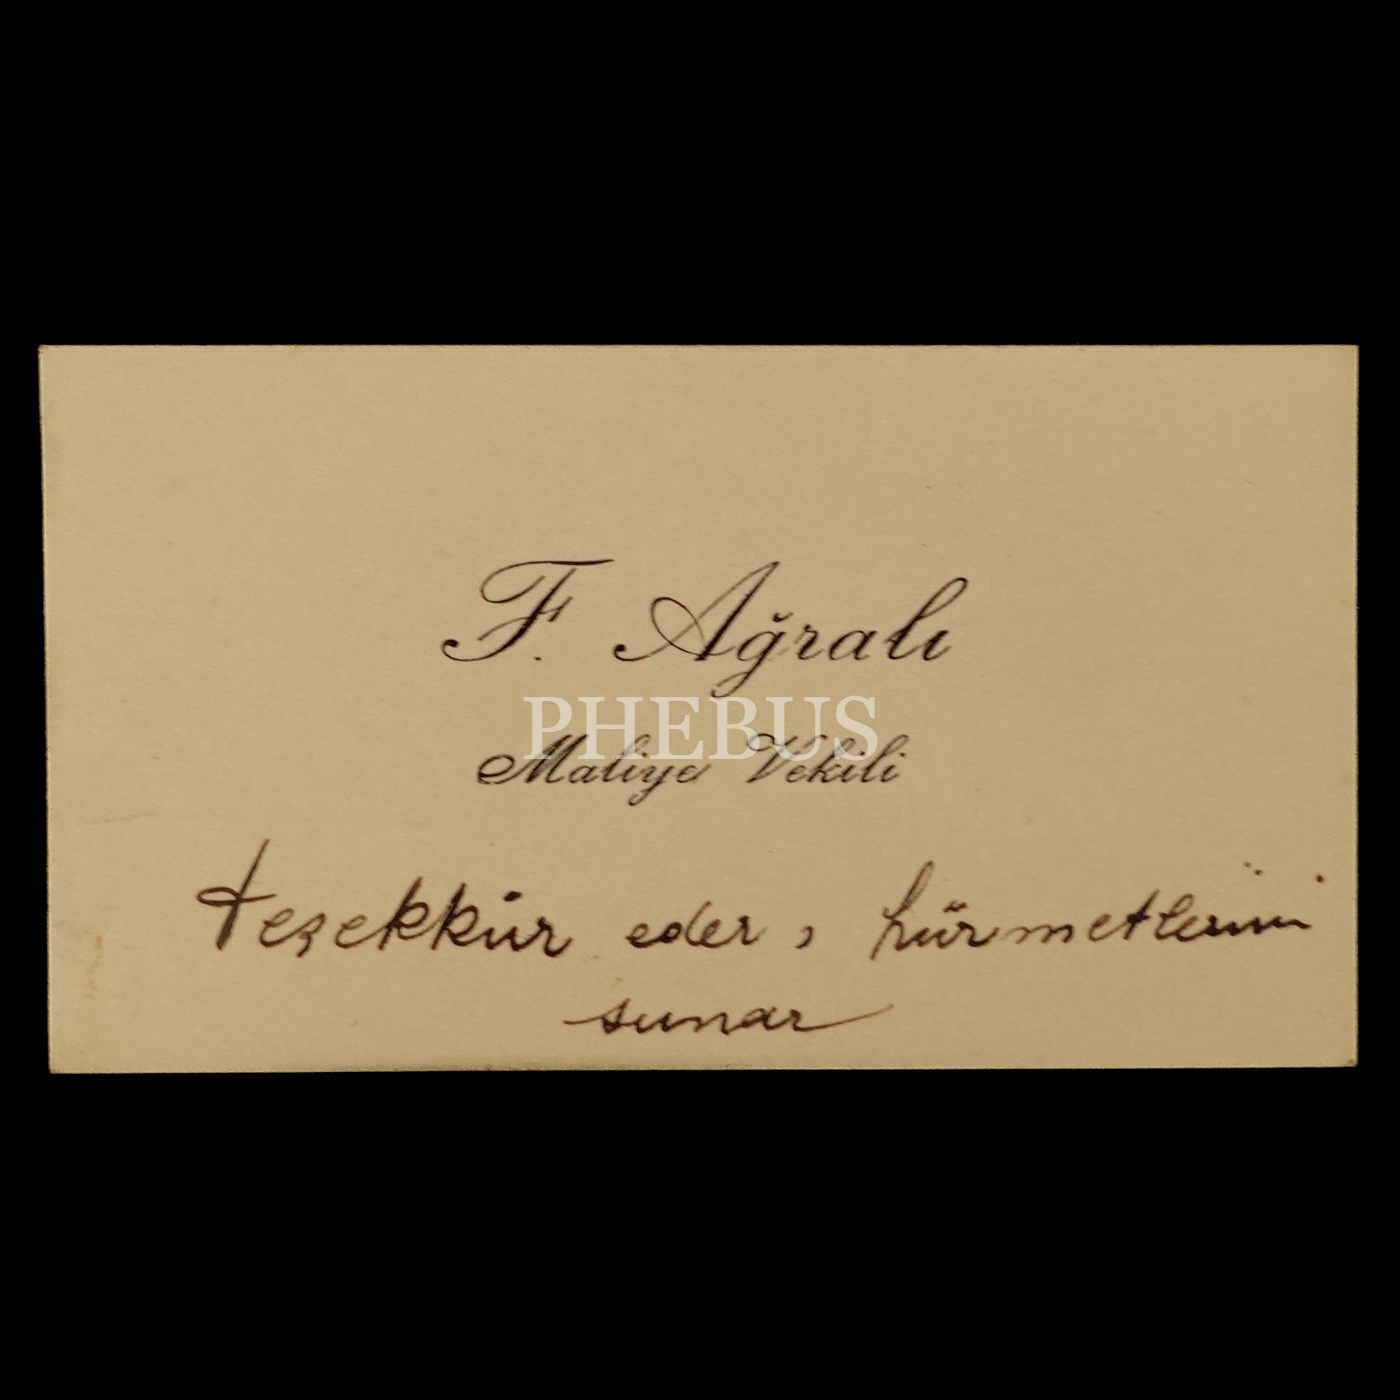 F. Ağralı
PHEBUS
Maliye Vekili
teşekkür eder, hürmetlerini
sunar